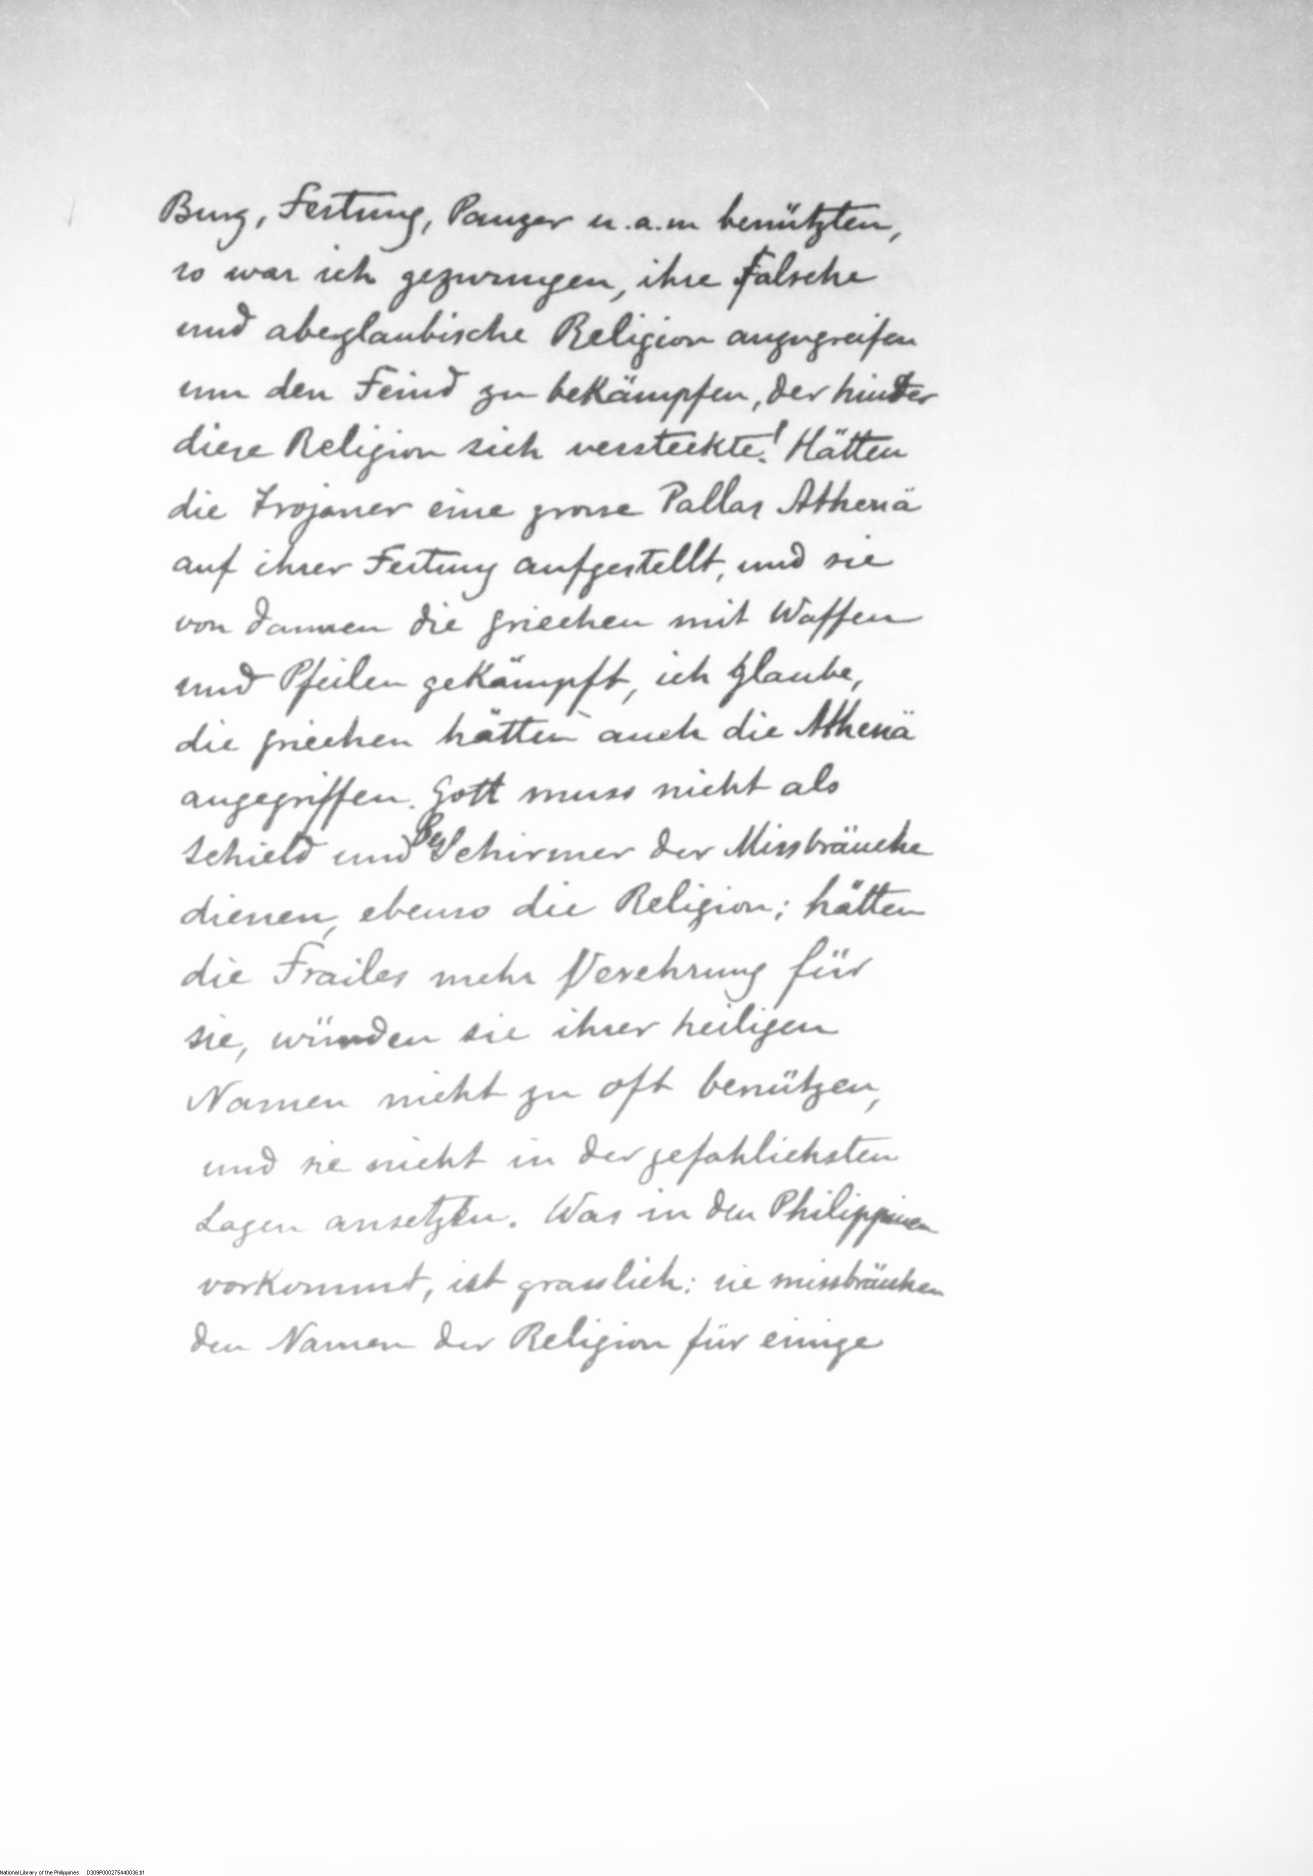 Burg, Festung, Panzer u.a.m benützten,
so war ich gezwungen, ihre falsche
und abeglaubische Religion anzugreifen
um den Feind zu bekämpfen, der hinter
diese Religion sich versteckte! Hätten
die Trojaner eine grosse Pallas Athenä
auf ihrer Festung aufgestellt, und sie
von dannen die Griechen mit Waffen
und Pfeilen gekämpft, ich glaube,
die Griechen hätten auch die Athenä
angegriffen. Gott muss nicht als
Schield und Beschirmer der Missbräuche
dienen, ebenso die Religion; hätten
die Frailes mehr Verehrung für
sie, würden sie ihrer heiligen
Namen nicht zu oft benützen,
und sie nicht in der gefahlichsten
Lagen ansetzten. Was in den Philippinen
vorkommt, ist grasslich: sie missbräuchen
den Namen der Religion für einige
National Library of the Philippines D309P000275440036.tif